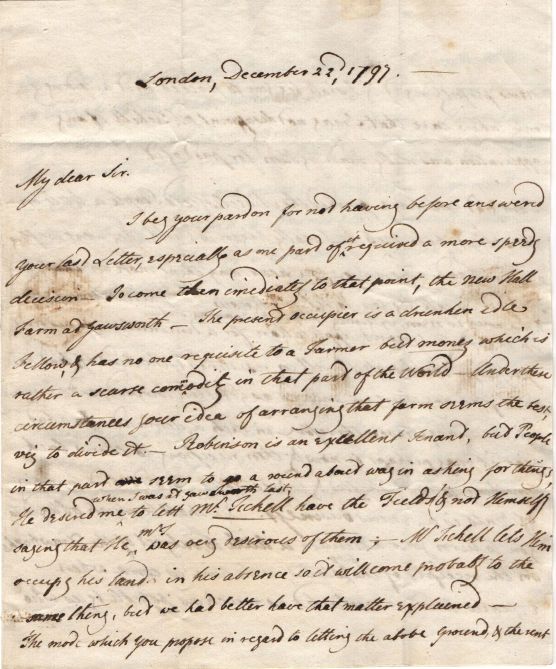 London, December 22d, 1797.
My dear Sir.
I beg your pardon for not having before answered
your last Letter, especially as one part of it required a more speedy
decision — To come then imediately to that point, the new Hall
Farm at Gawsworth — The present occupier is a drunken idle
Fellow, & has no one requisite to a Farmer but money which is
rather a scarse comodity in that part of the World — Under these
circumstances your idea of arranging that farm seems the best,
viz to divide it. — Robinson is an Excellent Tenant, but People
in that part seem to go a round about way in asking for things,
when I was at Gawsworth last,
He desired me to lett Mr. Sichell have the Fields, & not Himself
saying that He was very desirous of them; — Mr Sichell lets Him
occupy his land in his absence so it will come probably to the
same thing, but we had better have that matter explained —
The mode which you propose in regard to letting the above Ground, & the rent